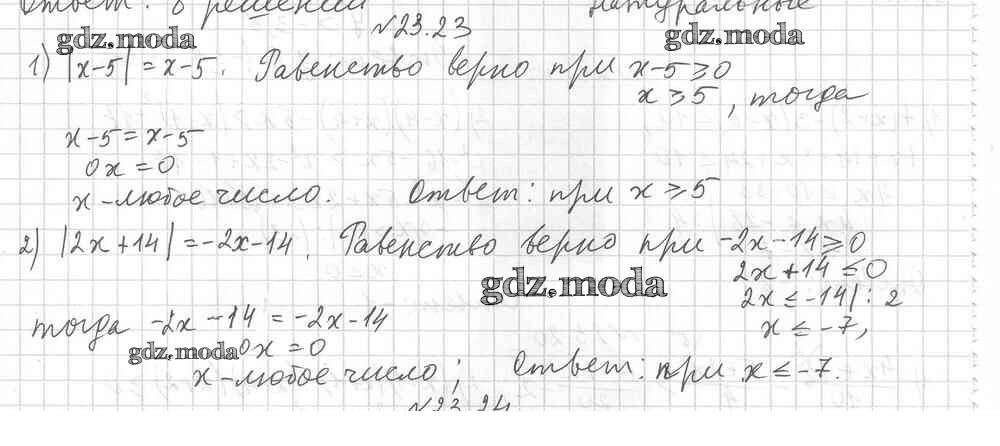 Ответ: 8 решений натуральные
№23.23
gdz.moda gdz.moda
1) |x-5| = x-5. Равенство верно при x-5⩾0
x⩾5, тогда
x-5 = x-5
0x = 0
x - любое число. Ответ: при x⩾5
2) |2x+14| = -2x-14. Равенство верно при -2x-14⩾0
gdz.moda 2x+14⩽0
2x⩽-14|:2
тогда -2x-14 = -2x-14 x⩽-7,
gdz.moda 0x = 0
x - любое число; Ответ: при x⩽-7.
№23.24